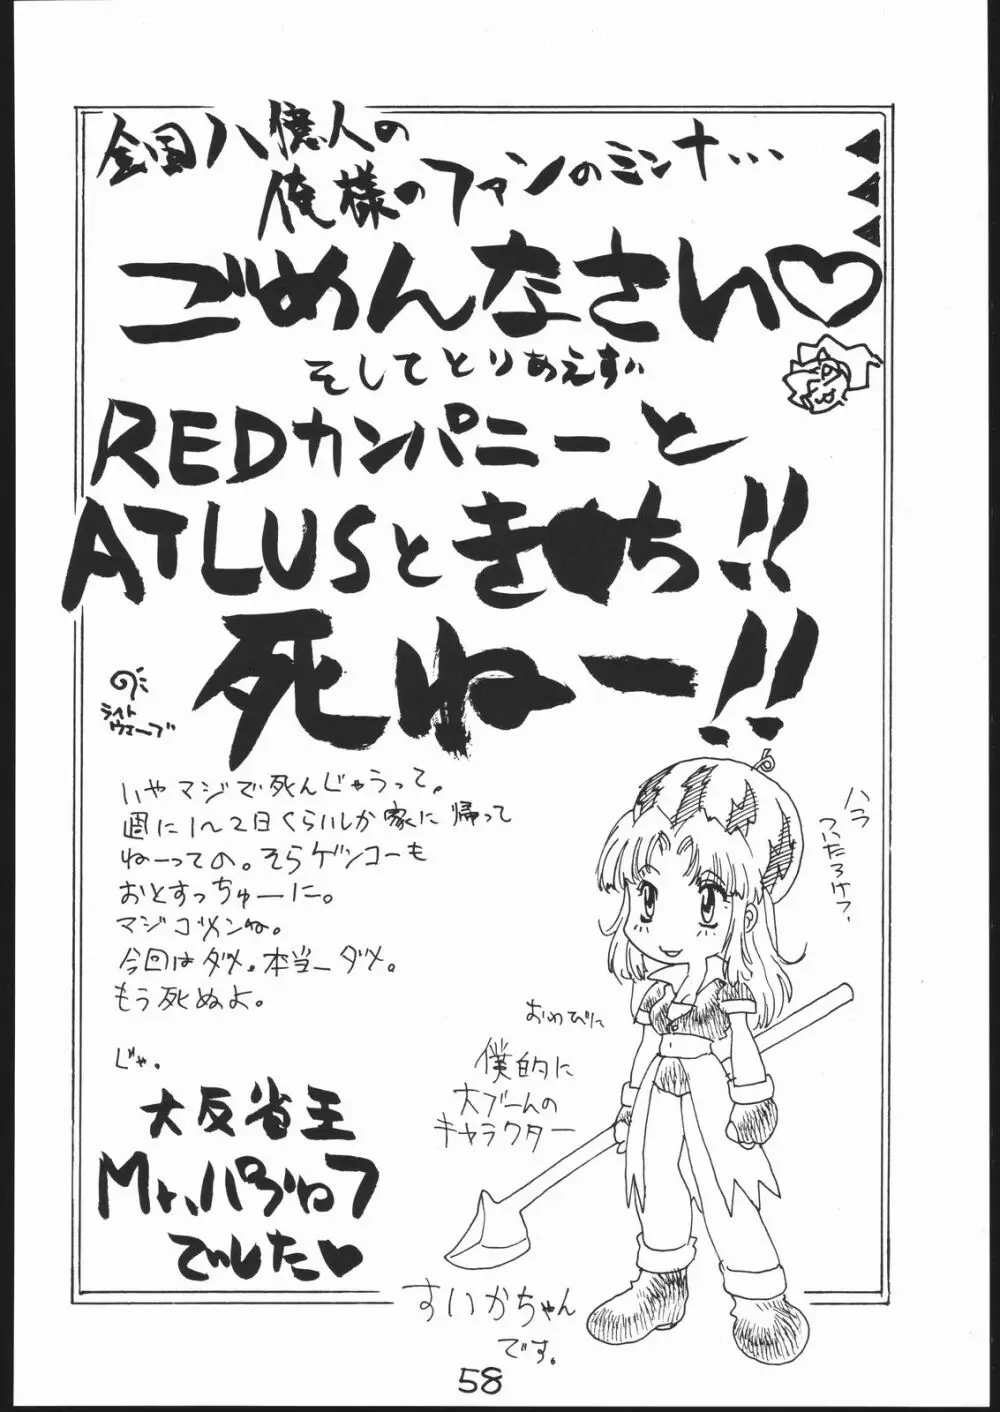 全国八億人の
俺様のファンのミンナ…
ごめんなさい♡
そしてとりあえず
REDカンパニーと
ATLUSとき●ち!!
死ねー!!
ライト
ウェーブ
いやマジで死んじゃうって。
週に1～2日くらいしか家に帰って
ねーっての。そらゲンコーも
おとすっちゅーに。
マジゴメンね。
今回はダメ。本当ーダメ。
もう死ぬよ。
じゃ。
大反省王
Mr.パジャ
でした♥
ハラ
へったろけ?
おわびに
僕的に
大ブームの
キャラクター
すいかちゃん
です。
58